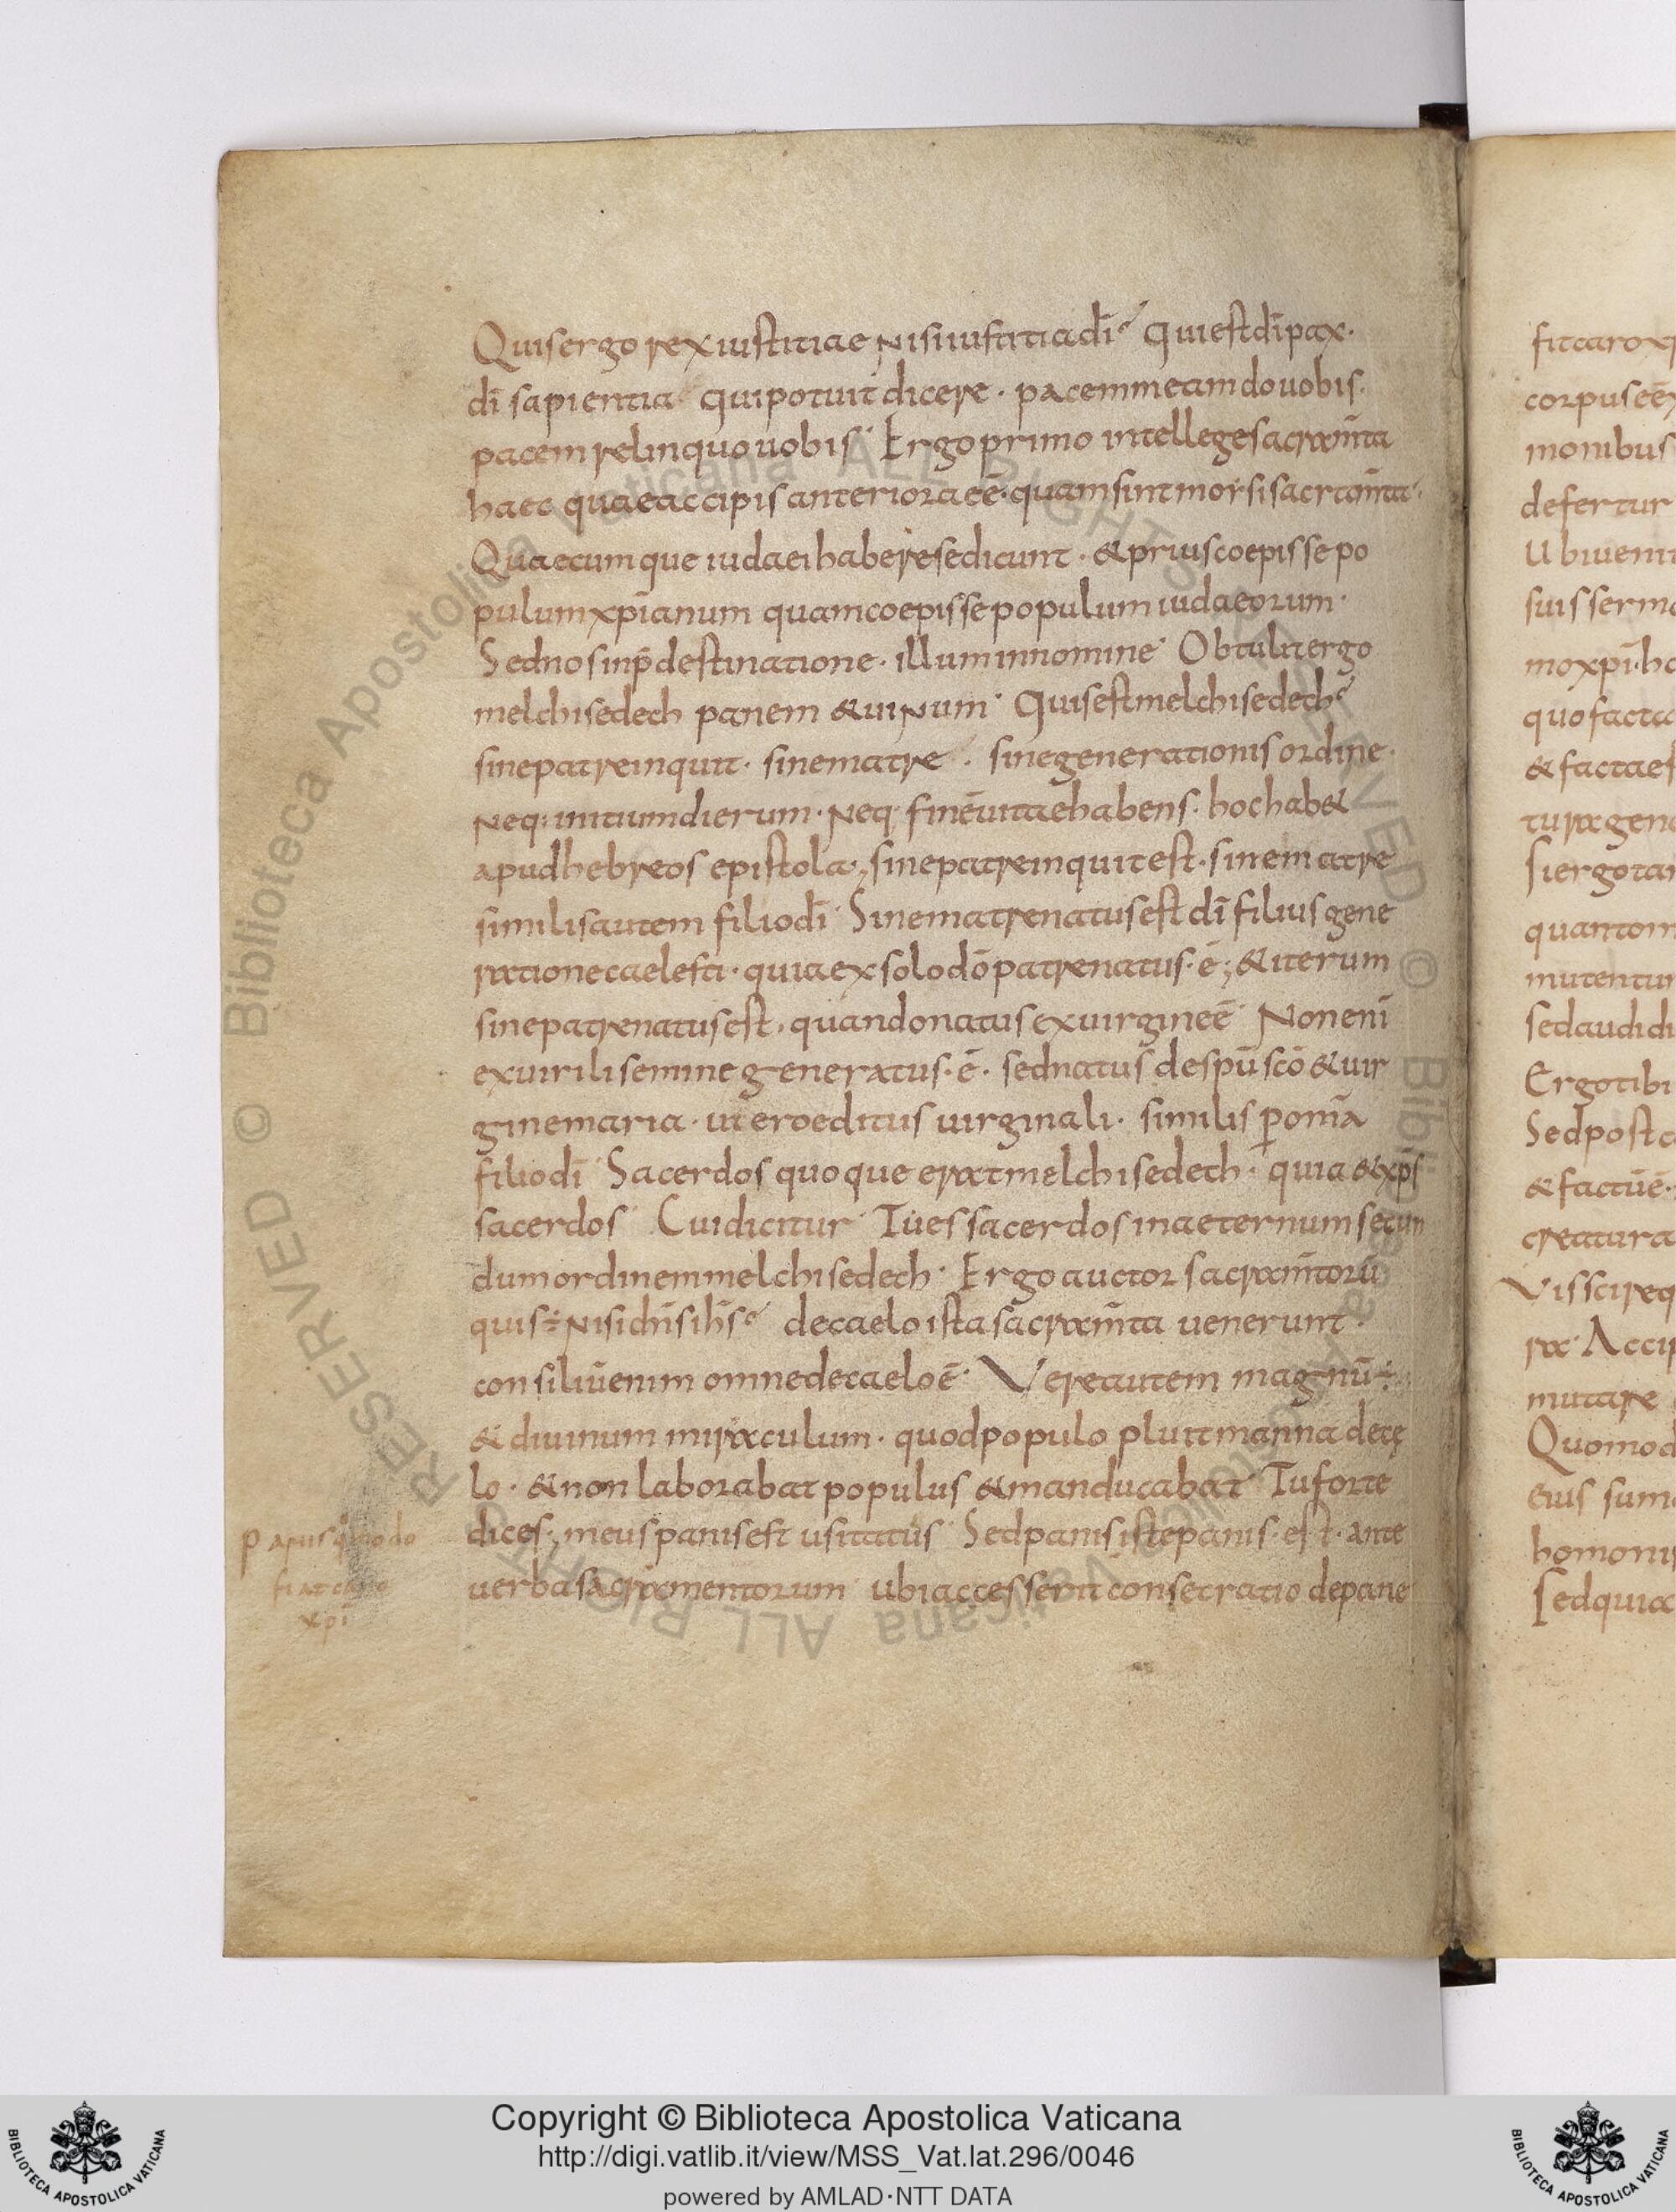 Quis ergo rex iustitiae nisi iustitia dī qui est dī pax·
dī sapientia qui potuit dicere· pacem meam do uobis·
pacem relinquo uobis· Ergo primo intellege sacram̄ta
haec quae accipis anteriora eē· quam sint morsi sacram̄ta·
Quaecumque iudaei habere se dicunt· & prius coepisse po
pulum xp̄ianum quam coepisse populum iudaeorum·
Sed nos in p̄destinatione· illum in nomine· Obtulit ergo
melchisedech panem & uinum· Quis est melchisedech
sine patre inquit· sine matre· sine generationis ordine·
neq: initium dierum· neq: finē uitae habens· hoc hab&
apud hebreos epistola; sine patre inquit est· sine matre
similis autem filio dī· Sine matre natus est dī filius gene
ratione caelesti· quia ex solo dō patre natus· ē; & iterum
sine patre natus est· quando natus ex uirgine ē· Non eni̅
ex uirili semine generatus· ē· sed natus de spū scō & uir
gine maria· utero editus uirginali· similis ꝑ om̄a
filio dī· Sacerdos quoque erat melchisedech· quia & xp̄s
sacerdos· Cui dicitur· Tu es sacerdos in aeternum secun
dum ordinem melchisedech· Ergo auctor sacram̄torū
quis ÷ nisi dn̄s ih̄s de caelo ista sacram̄ta uenerunt·
consiliū enim omne de caelo ē· Vere autem magnū ÷
& diuinum miraculum· quod populo pluit manna de cę
lo· & non laborabat populus & manducabat· Tu forte
dices; meus panis est usitatus· Sed panis iste panis· est· ante
uerba sacramentorum· ubi accesserit consecratio de pane
Panis quomodo
fiat caro
xp̄i
fit caro x
corpus eē
monibus
defertur
Ubi ueni
suis sermo
mo xp̄i· ho
quo facta
& facta es
tura gen
Si ergo ta
quanto m
mutentur
sed audi di
Ergo tibi
Sed post c
& factū ē·
creatura
Vis scire q
ra· Accip
mutare
Quomod
eius sum
homo ni
Sed quia
Copyright © Biblioteca Apostolica Vaticana
http://digi.vatlib.it/view/MSS_Vat.lat.296/0046
powered by AMLAD·NTT DATA
BIBLIOTECA APOSTOLICA VATICANA
BIBLIOTECA APOSTOLICA VATICANA